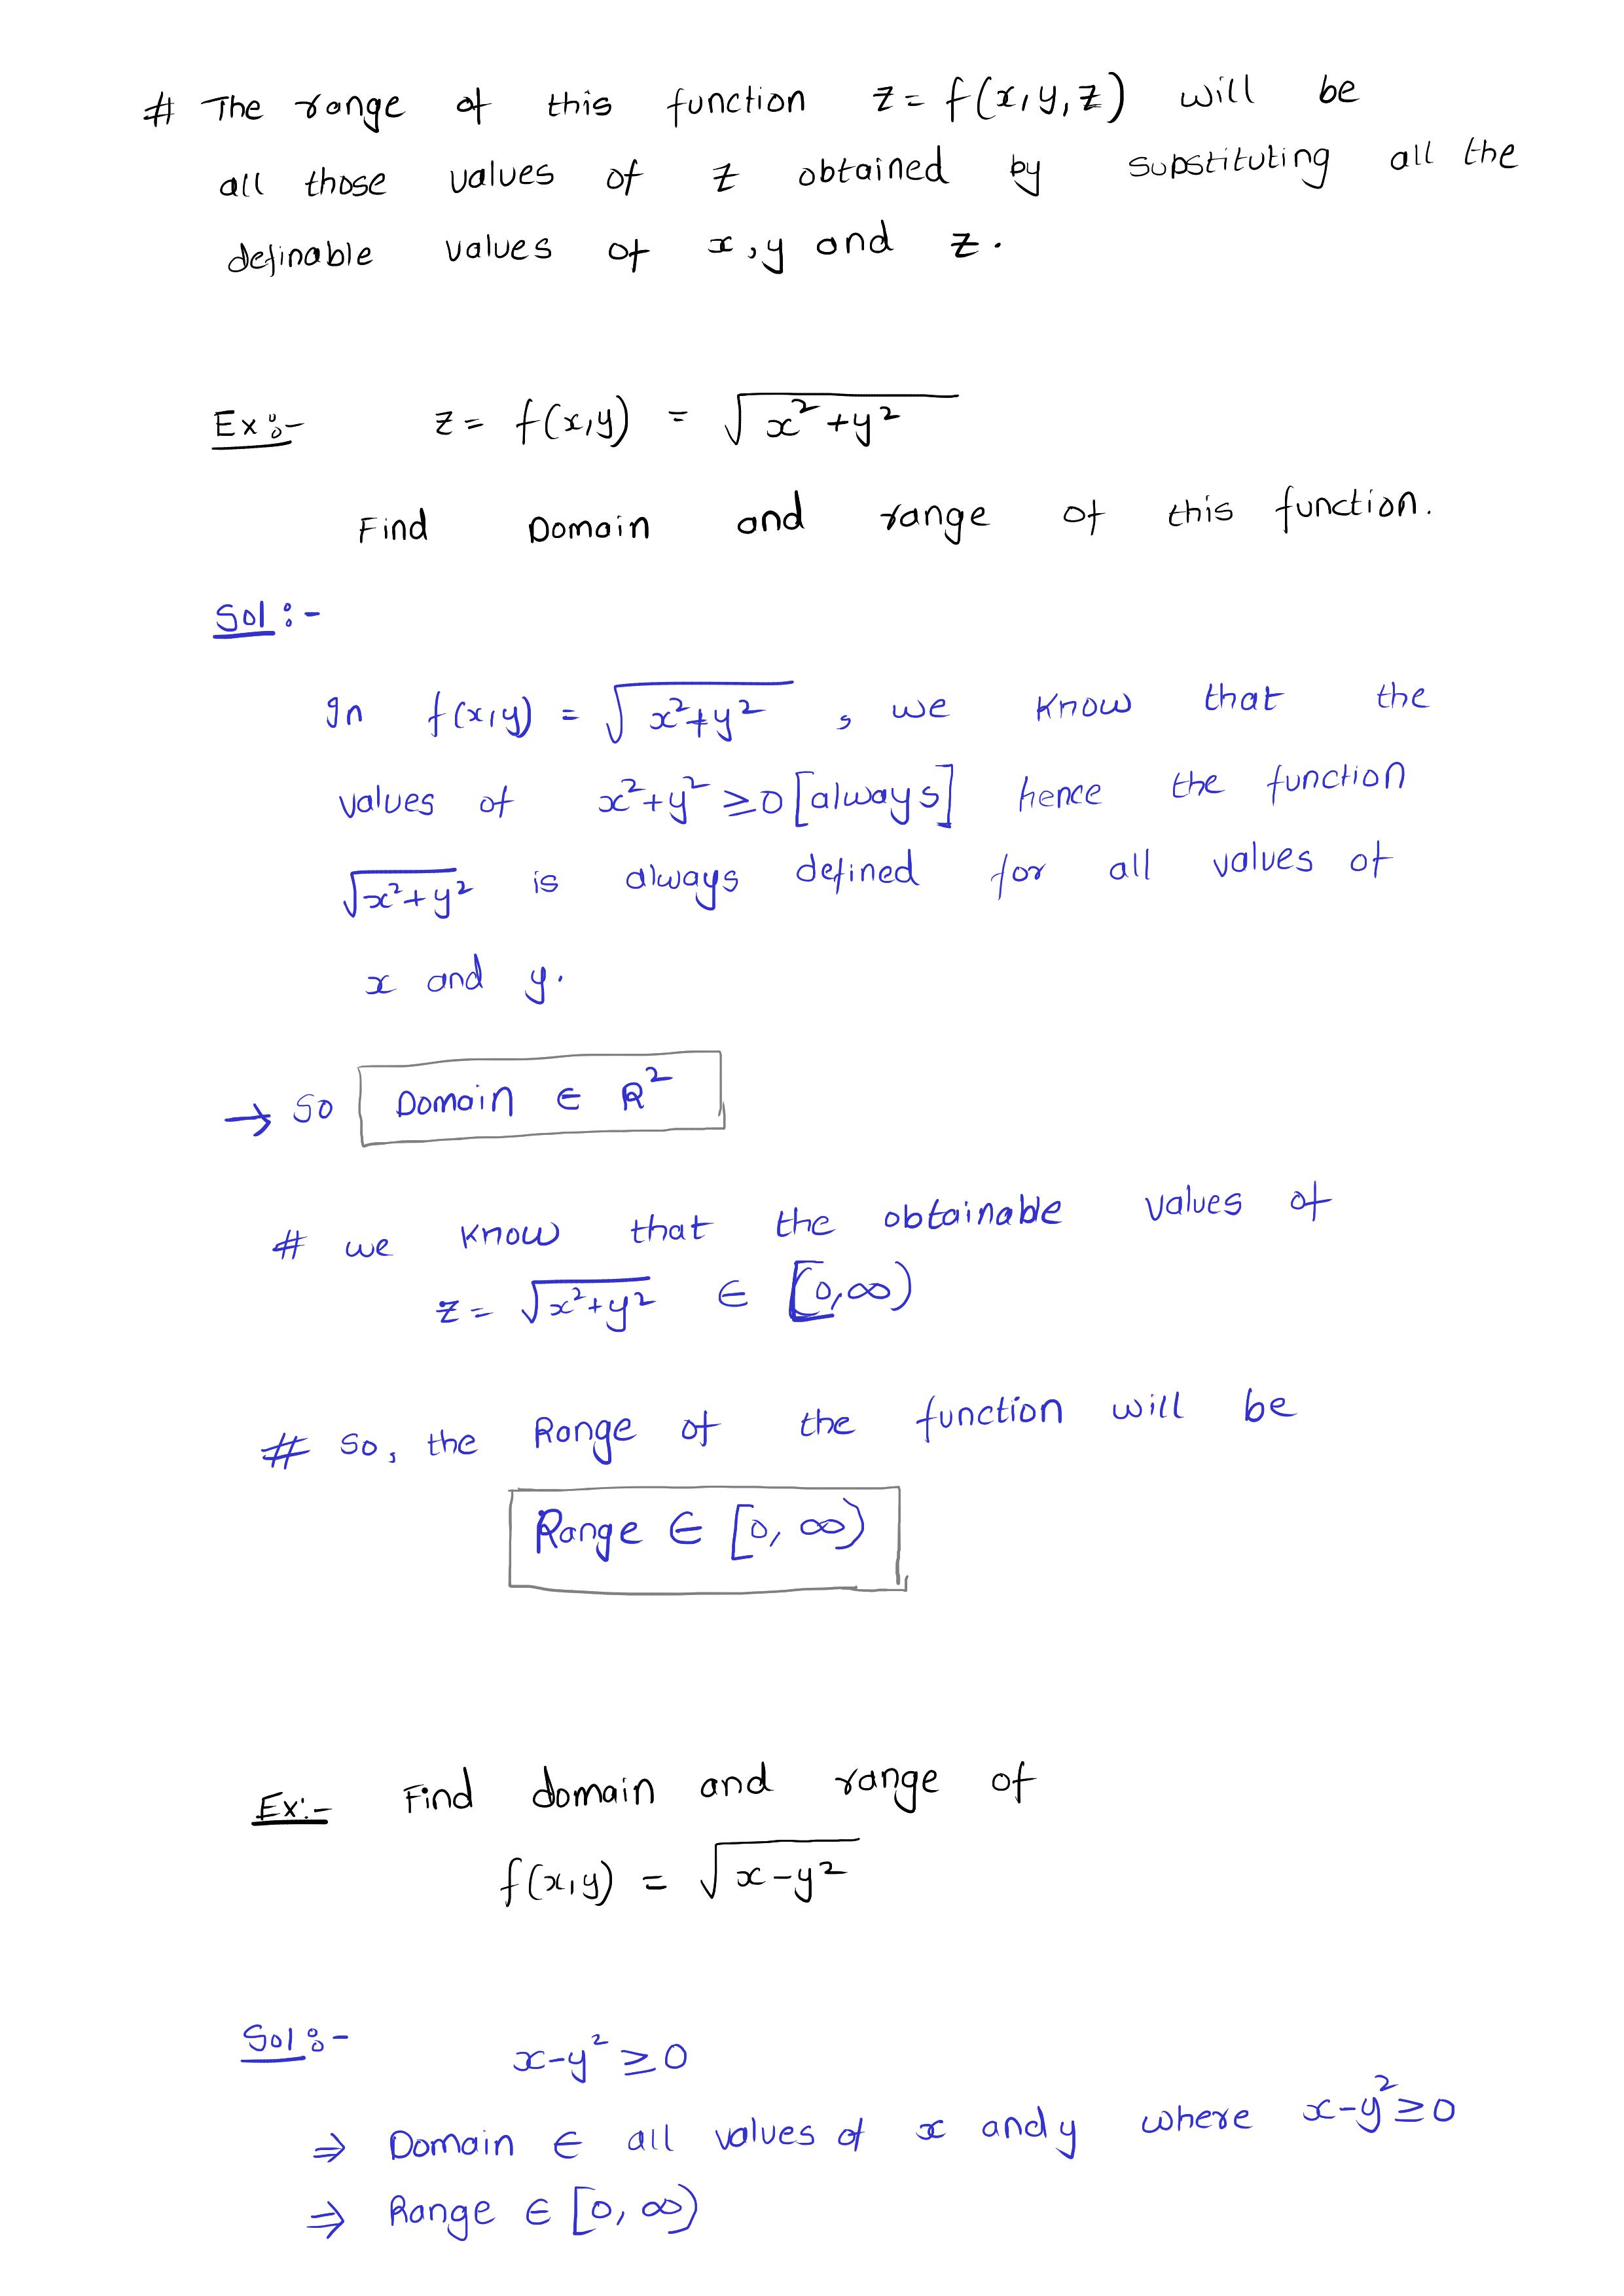 # The range of this function z = f(x,y,z) will be
all those values of z obtained by substituting all the
definable values of x,y and z.
Ex:- z = f(x,y) = √(x²+y²)
Find Domain and range of this function.
Sol:-
In f(x,y) = √(x²+y²) , we know that the
values of x²+y² ≥0 [always] hence the function
√(x²+y²) is always defined for all values of
x and y.
→ So Domain ∈ R²
# we know that the obtainable values of
z = √(x²+y²) ∈ [0,∞)
# so, the Range of the function will be
Range ∈ [0, ∞)
Ex:- Find domain and range of
f(x,y) = √(x-y²)
Sol:- x-y² ≥0
⇒ Domain ∈ all values of x and y where x-y²≥0
⇒ Range ∈ [0, ∞)